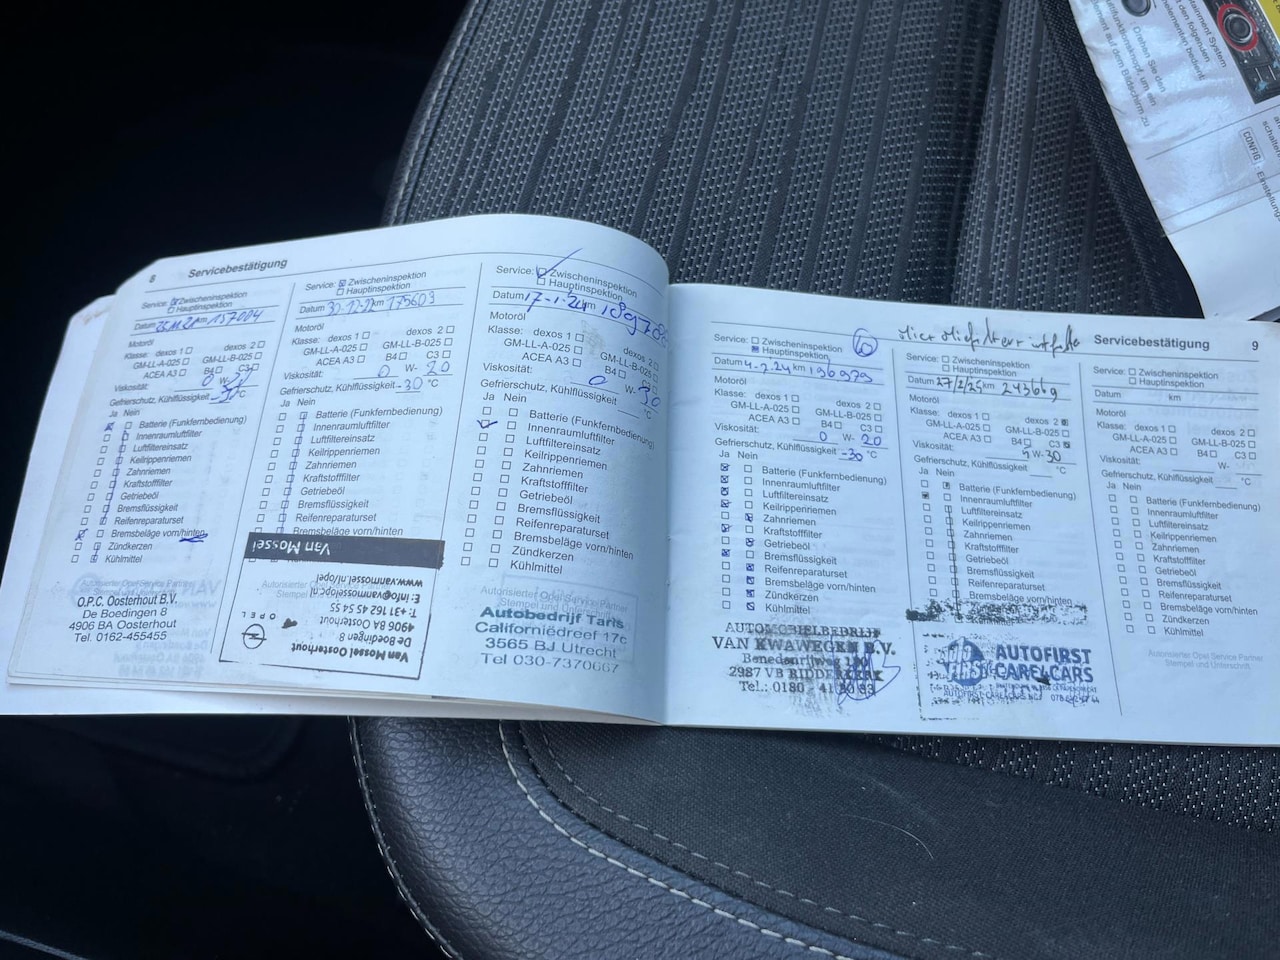 8 Servicebestätigung
Service: Zwischeninspektion
Hauptinspektion
Datum km 157004
Motoröl
Klasse: dexos 1 dexos 2
GM-LL-A-025 GM-LL-B-025
ACEA A3 B4 C3
Viskosität: 0 W-
Gefrierschutz, Kühlflüssigkeit -30 °C
Ja Nein
Batterie (Funkfernbedienung)
Innenraumluftfilter
Luftfiltereinsatz
Keilrippenriemen
Zahnriemen
Kraftstofffilter
Getriebeöl
Bremsflüssigkeit
Reifenreparaturset
Bremsbeläge vorn/hinten
Zündkerzen
Kühlmittel
Autorisierter Opel Service Partner
O.P.C. Oosterhout B.V.
De Boedingen 8
4906 BA Oosterhout
Tel. 0162-455455
Service: Zwischeninspektion
Hauptinspektion
Datum 30-12-22 km 175603
Motoröl
Klasse: dexos 1 dexos 2
GM-LL-A-025 GM-LL-B-025
ACEA A3 B4 C3
Viskosität: 0 W- 20
Gefrierschutz, Kühlflüssigkeit -30 °C
Ja Nein
Batterie (Funkfernbedienung)
Innenraumluftfilter
Luftfiltereinsatz
Keilrippenriemen
Zahnriemen
Kraftstofffilter
Getriebeöl
Bremsflüssigkeit
Reifenreparaturset
Bremsbeläge vorn/hinten
Van Mossel
www.vanmossel.nl/opel
T: +31 162 45 54 55
4906 BA Oosterhout
De Boedingen 8
Van Mossel Oosterhout
OPEL
Service: Zwischeninspektion
Hauptinspektion
Datum 17-1-24 km 189788
Motoröl
Klasse: dexos 1 dexos 2
GM-LL-A-025 GM-LL-B-025
ACEA A3 B4 C3
Viskosität: 0 W- 30
Gefrierschutz, Kühlflüssigkeit °C
Ja Nein
Batterie (Funkfernbedienung)
Innenraumluftfilter
Luftfiltereinsatz
Keilrippenriemen
Zahnriemen
Kraftstofffilter
Getriebeöl
Bremsflüssigkeit
Reifenreparaturset
Bremsbeläge vorn/hinten
Zündkerzen
Kühlmittel
Autorisierter Opel Service Partner
Stempel und Unterschrift
Autobedrijf Taris
Californiëdreef 17c
3565 BJ Utrecht
Tel 030-7370667
Servicebestätigung 9
Service: Zwischeninspektion
Hauptinspektion
Datum 4-2-24 km 196979
Motoröl
Klasse: dexos 1 dexos 2
GM-LL-A-025 GM-LL-B-025
ACEA A3 B4 C3
Viskosität: 0 W- 20
Gefrierschutz, Kühlflüssigkeit -30 °C
Ja Nein
Batterie (Funkfernbedienung)
Innenraumluftfilter
Luftfiltereinsatz
Keilrippenriemen
Zahnriemen
Kraftstofffilter
Getriebeöl
Bremsflüssigkeit
Reifenreparaturset
Bremsbeläge vorn/hinten
Zündkerzen
Kühlmittel
AUTOMOBIELBEDRIJF
VAN KWAWEGEN B.V.
Benedenrijweg
2987 VB RIDDERKERK
Tel.: 0180 - 41
Service: Zwischeninspektion
Hauptinspektion
Datum km
Motoröl
Klasse: dexos 1 dexos 2
GM-LL-A-025 GM-LL-B-025
ACEA A3 B4 C3
Viskosität: W- 30
Gefrierschutz, Kühlflüssigkeit °C
Ja Nein
Batterie (Funkfernbedienung)
Innenraumluftfilter
Luftfiltereinsatz
Keilrippenriemen
Zahnriemen
Kraftstofffilter
Getriebeöl
Bremsflüssigkeit
Reifenreparaturset
Bremsbeläge vorn/hinten
AUTOFIRST
CARE4CARS
Service: Zwischeninspektion
Hauptinspektion
Datum km
Motoröl
Klasse: dexos 1 dexos 2
GM-LL-A-025 GM-LL-B-025
ACEA A3 B4 C3
Viskosität: W-
Gefrierschutz, Kühlflüssigkeit °C
Ja Nein
Batterie (Funkfernbedienung)
Innenraumluftfilter
Luftfiltereinsatz
Keilrippenriemen
Zahnriemen
Kraftstofffilter
Getriebeöl
Bremsflüssigkeit
Reifenreparaturset
Bremsbeläge vorn/hinten
Zündkerzen
Kühlmittel
Autorisierter Opel Service Partner
Stempel und Unterschrift
tainment System
den folgenden
elementen bedient
Drehen Sie den
ultifunktionsknopf, um ein
ment auf dem Bildschirm zu
schalten
CONFIG : Einstellung